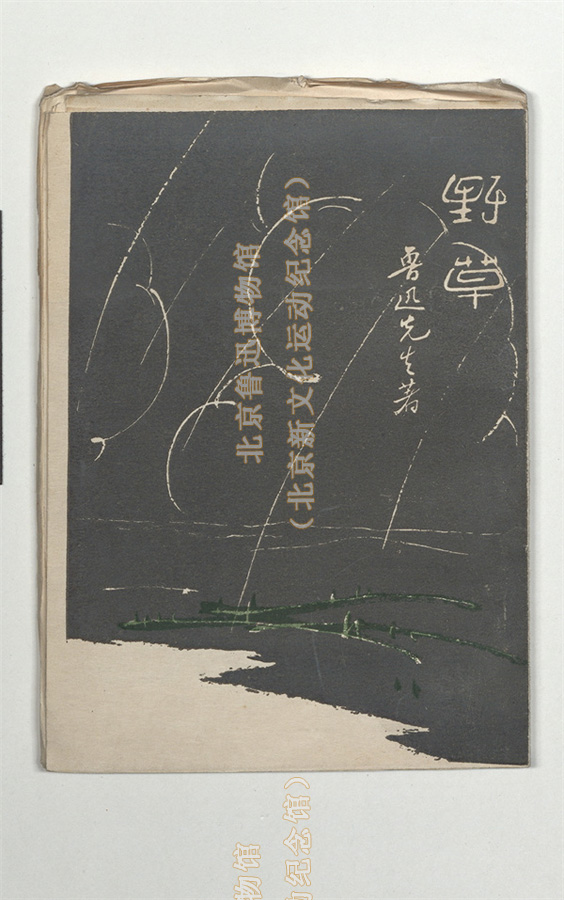 野草
魯迅先生著
北京鲁迅博物馆
（北京新文化运动纪念馆）
物馆
动纪念馆）